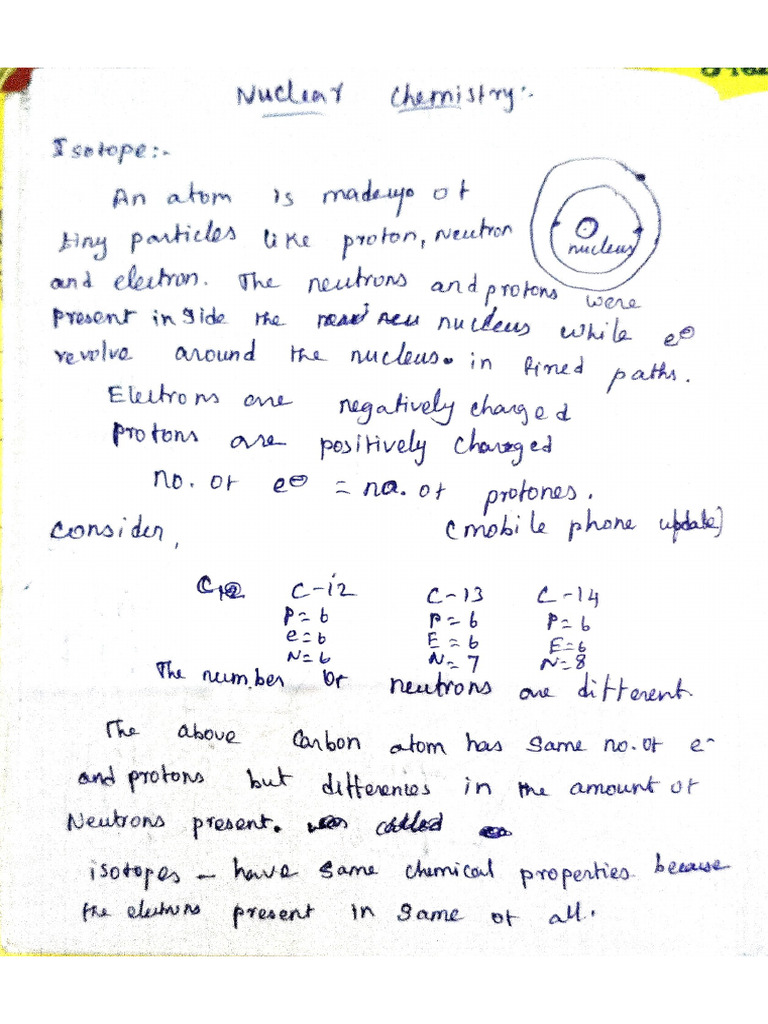 Nuclear Chemistry:-
Isotope:-
An atom is madeup of
tiny particles like proton, Neutron
nucleus
and electron. The neutrons and protons were
present inside the nucleus while e⊖
revolve around the nucleus. in fined paths.
Electrons are negatively charged
Protons are positively charged
no. of e⊖ = no. of protones.
Consider, (mobile phone update)
C12 C-12 C-13 C-14
P=6 P=6 P=6
e=6 E=6 E=6
N=6 N=7 N=8
The number of neutrons are different
The above Carbon atom has same no. of e-
and protons but differences in the amount of
Neutrons present. called
isotopes - have same chemical properties because
the electrons present in same of all.